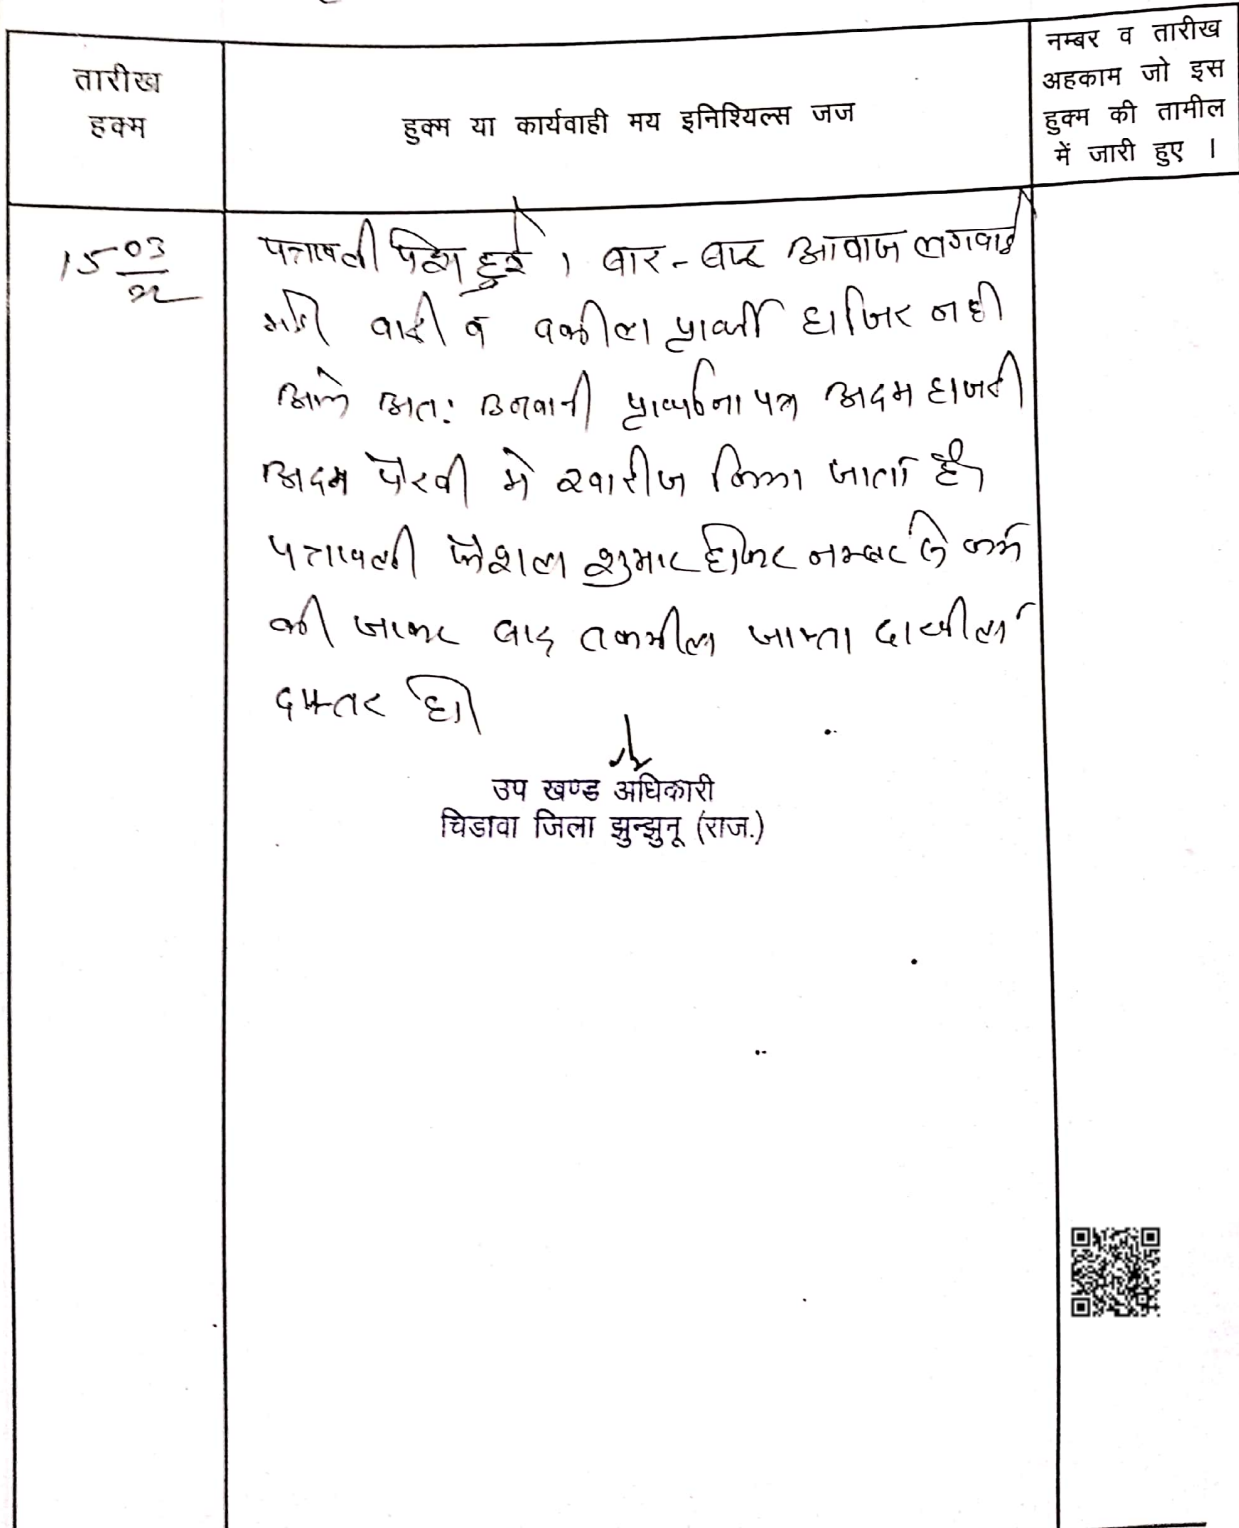 तारीख
हक्म
हुक्म या कार्यवाही मय इनिश्यिल्स जज
नम्बर व तारीख
अहकाम जो इस
हुक्म की तामील
में जारी हुए ।
15 03
पत्रावली पेश हुई । बार-बार आवाज लगवाई
गयी वादी व वकील प्रार्थी हाजिर नही
आये अतः उनवानी प्रार्थना पत्र अदम हाजरी
अदम पैरवी मे खारीज किया जाता है।
पत्रावली फैशल शुमार होकर नम्बर से कम
की जाकर बाद तकमील जाप्ता दाखील
दफ्तर हो।
उप खण्ड अधिकारी
चिडावा जिला झुन्झुनू (राज.)